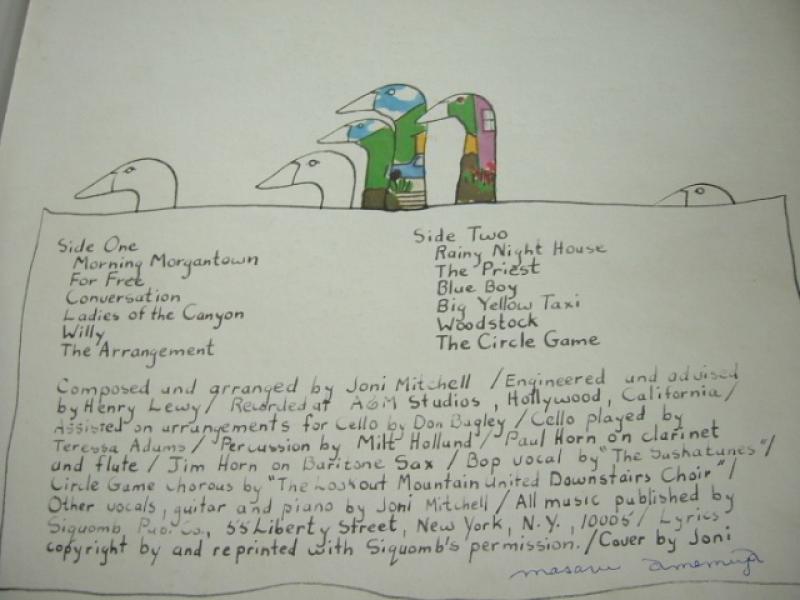 Side One
Morning Morgantown
For Free
Conversation
Ladies of the Canyon
Willy
The Arrangement
Side Two
Rainy Night House
The Priest
Blue Boy
Big Yellow Taxi
Woodstock
The Circle Game
Composed and arranged by Joni Mitchell / Engineered and advised
by Henry Lewy / Recorded at A&M Studios, Hollywood, California /
Assisted on arrangements for Cello by Don Bagley / Cello played by
Teressa Adams / Percussion by Milt Holland / Paul Horn on clarinet
and flute / Jim Horn on Baritone Sax / Bop vocal by "The Saskatunes" /
Circle Game chorous by "The Lookout Mountain United Downstairs Choir" /
Other vocals, guitar and piano by Joni Mitchell / All music published by
Siquomb Pub. Co., 55 Liberty Street, New York, N.Y., 10005 / Lyrics
copyright by and reprinted with Siquomb's permission. / Cover by Joni
masaru amemiya